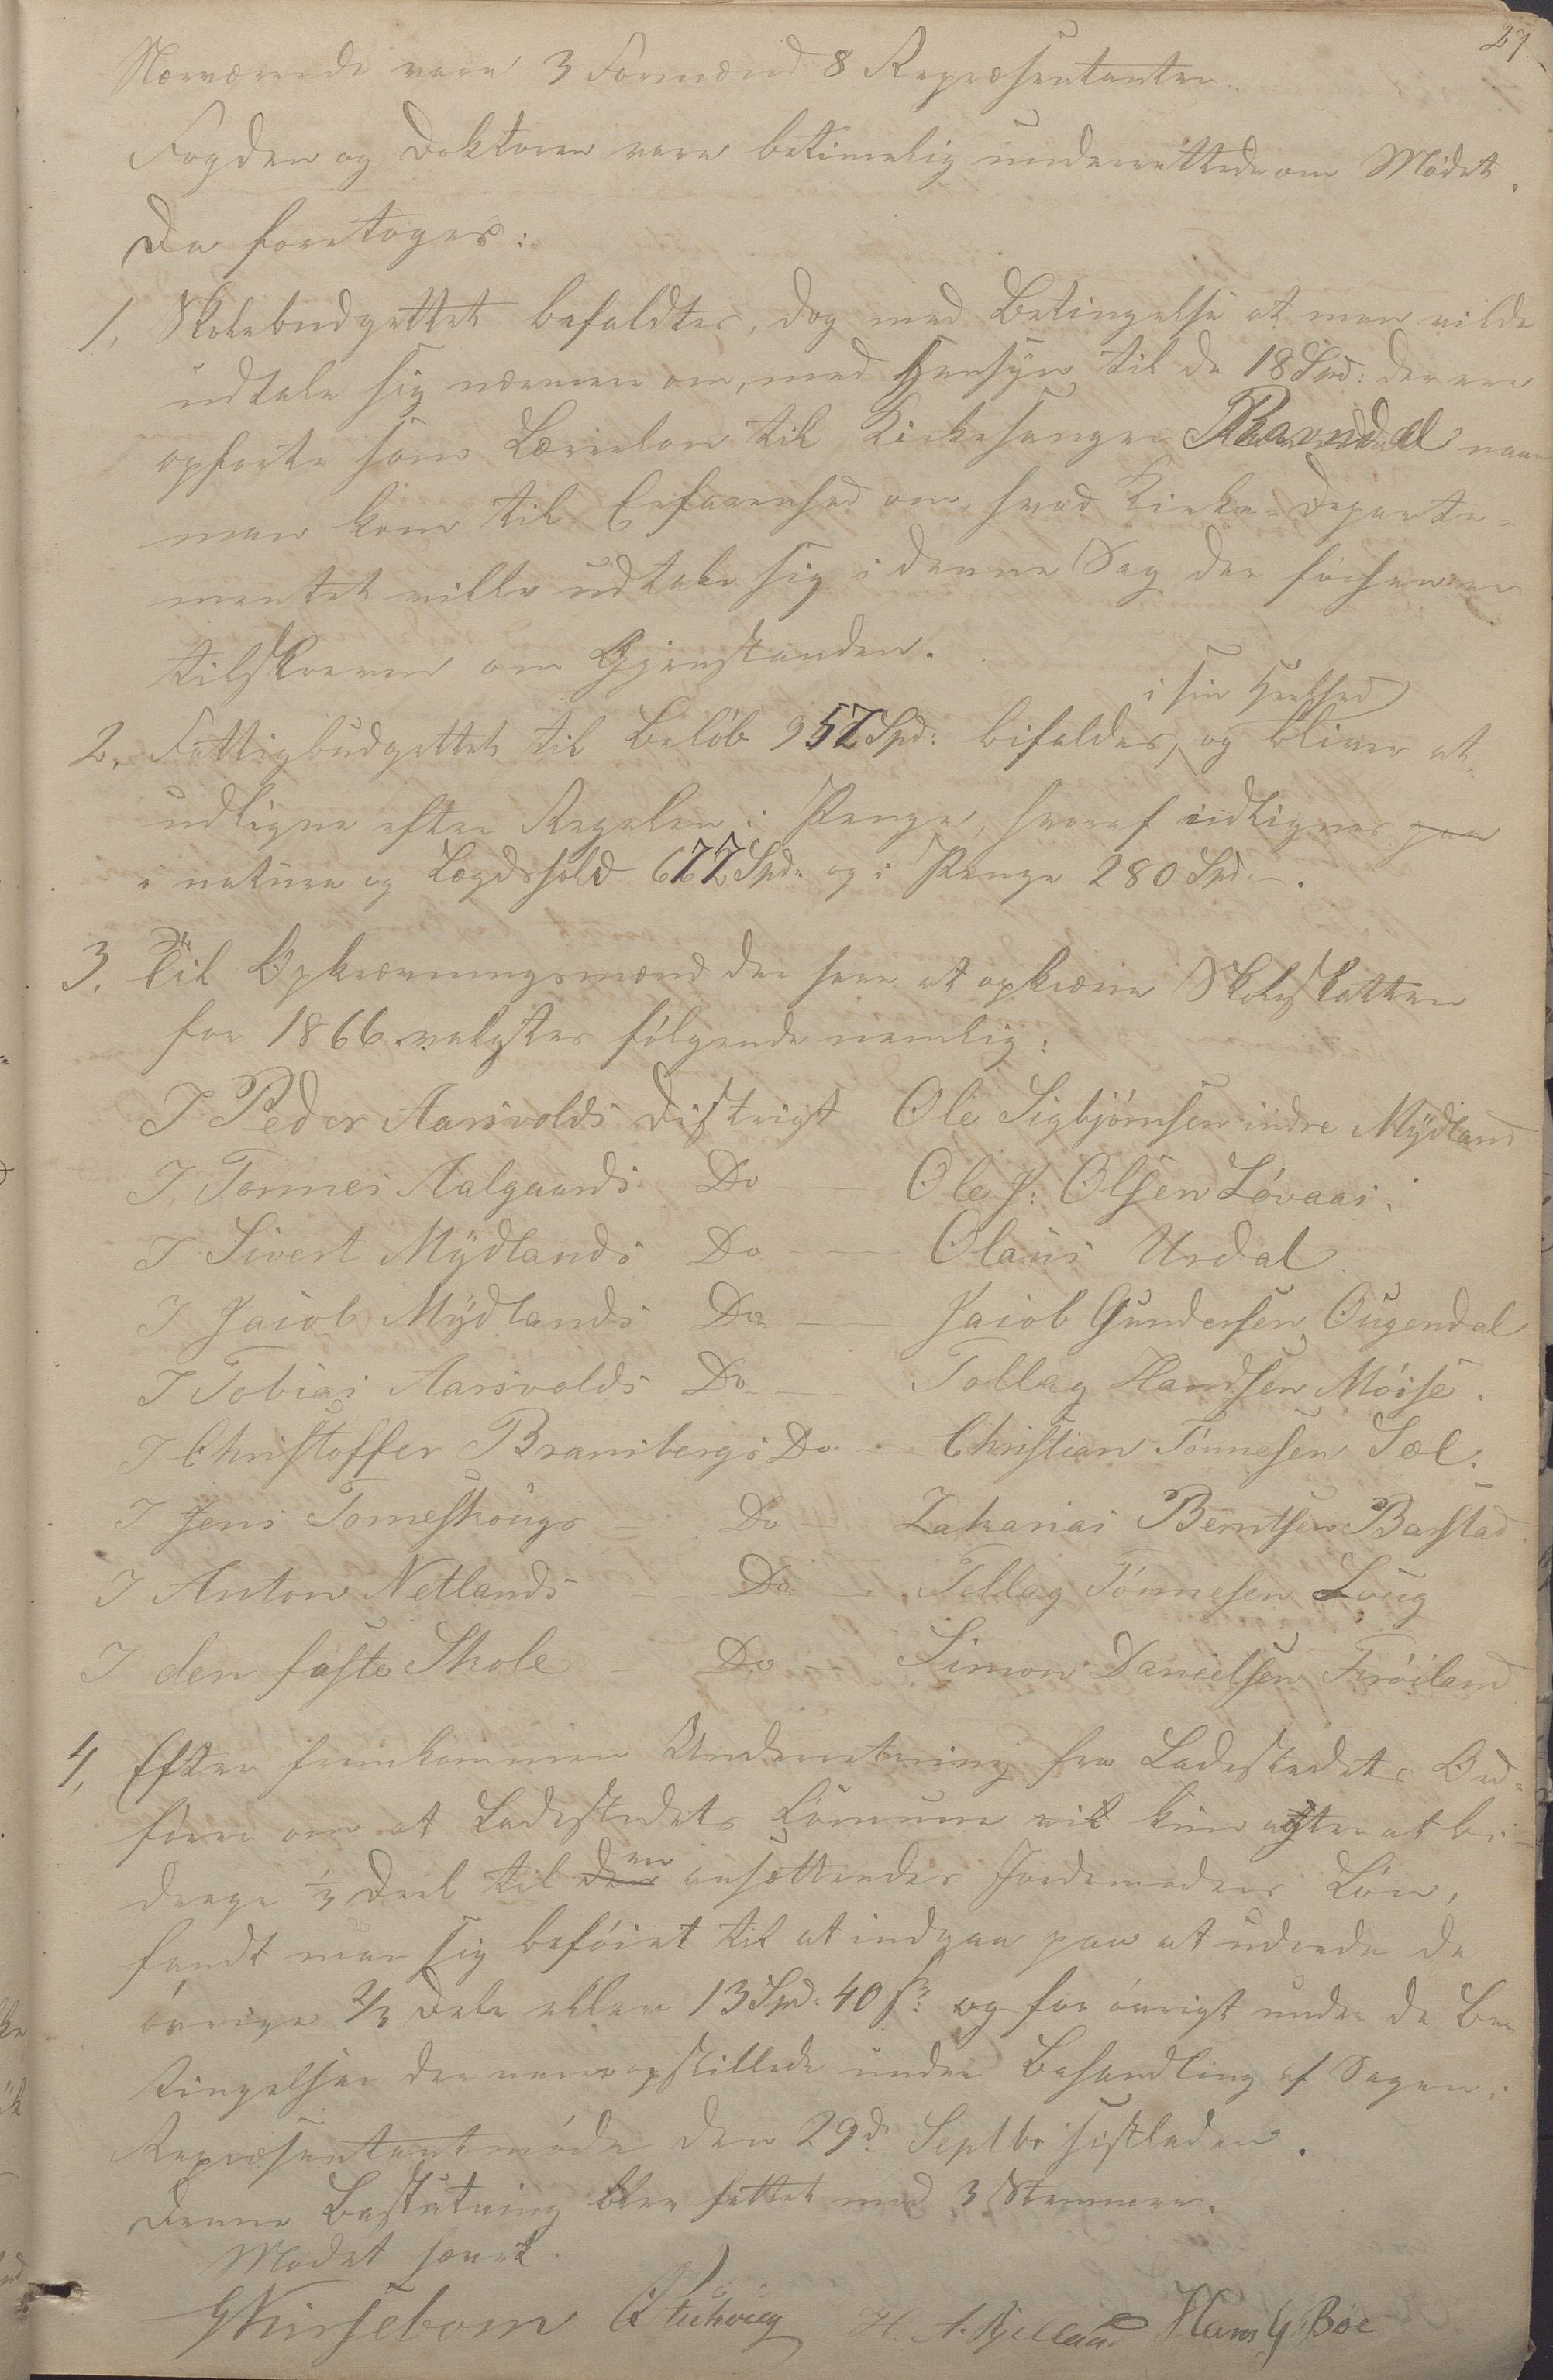 27
Nærværende vare 3 Formænd 8 Repræsentanter.
Fogden og Doktoren vare betimelig underrettede om Mødet.
Da foretoges:
1, Skolebudgettet befaldtes, dog med Betingelse at man vilde
udtale sig nærmere om, med Hensyn til de 18 Spd: der ere
opførte som Lærerløn til Kirkesanger Ravndal naar
man kom til Erfarenhed om, hvad Kirke-Departe-
mentet ville udtale sig i denne Sag der forhen er
tilskreven om Gjenstanden.
i sin Heelhed
2, Fattigbudgettet til Beløb 957 Spd: bifaldes, og bliver at
udligne efter Regelen i Penge, hvoraf udlignes paa
i natura og Lægdshold 677 Spd. og i Penge 280 Spd.
3, Til Opkrævningsmænd der have at opkræve Skoleskatten
for 1866 valgtes følgende nemlig:
I Peder Aarsvolds Distrigt Ole Sigbjørnsen indre Mÿdland
I. Tønnes Aalgaards Do — Ole J: Olsen Løvaas.
I Sivert Mÿdlands Do — Olaus Urdal
I Jacob Mÿdlands Do — Jacob Gundersen Ougendal
I Tobias Aarsvolds Do — Tollag Handsen Moise.
I Christoffer Bransbergs Do. — Christian Tønnesen Sæl.
I Jens Tomeskougs — Do — Zakarias Berntsen Barstad.
I Anton Netlands Do. — Tellag Tønnesen Løug
I den faste Skole — Do — Simon Danielsen Frøiland
4, Efter fremkommen Underretning fra Ladestedets Ord-
fører om at Ladestedets Comune vil kun agter at bi-
drage 1/3 Deel til den en ansættendes Jordemoders Løn,
fandt man sig beføiet til at indgaa paa at udrede de
øvrige 2/3 Dele eller 13 Spd: 40 s: og for øvrigt under de Be-
tingelser der vare opstillede under Behandling af Sagen i
Repræsentantmøde den 29de Septbr sistleden.
Denne Beslutning blev fattet med 3 Stemmer.
Mødet hævet.
H. A. Gjelland Hans G Böe